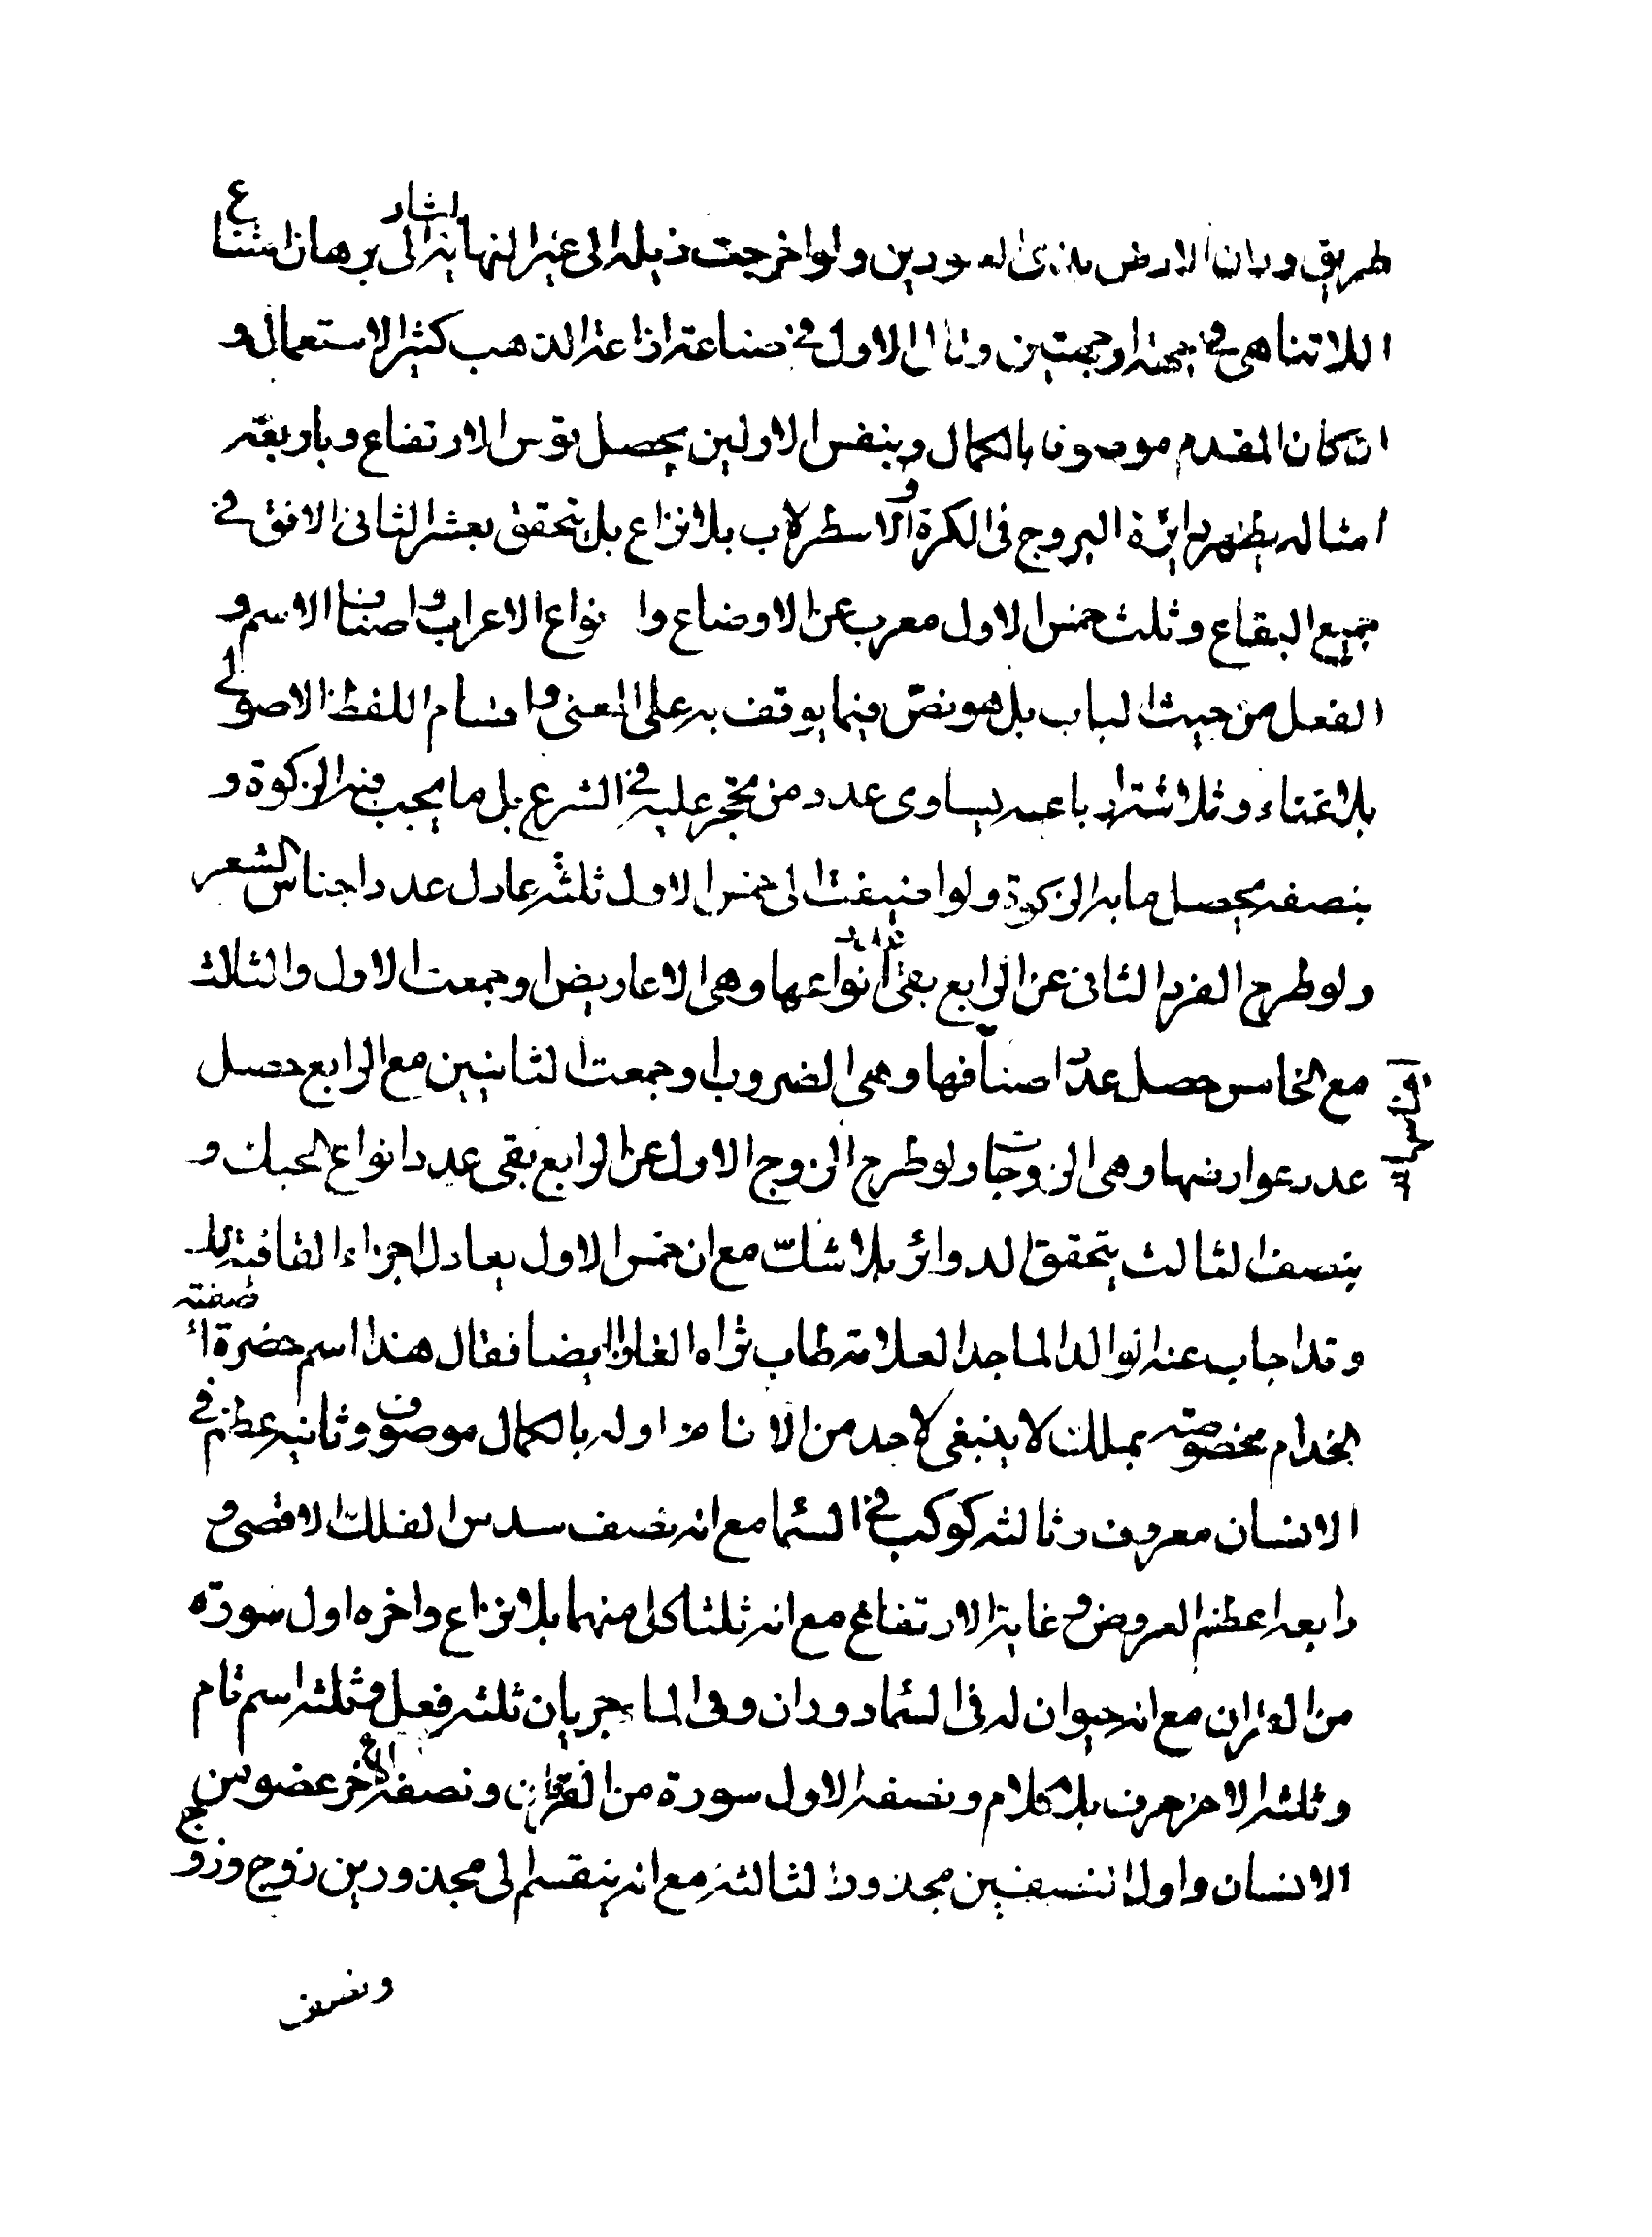 طريق ودان الارض ولواخرجت ذيله الى غير النهاية اشار الى برهان امتناع
اللاتناهى فى جهة او جهتين و الاول فى صناعة اذاعة الذهب كثير الاستعمال و
ان كان المقدم موصوفا بالكمال وبنفس الاولين يحصل قوس الارتفاع وباربعة
امثاله يظهر دائرة البروج فى الكرة و الاسطرلاب بلانزاع بل يتحقق بعشر الثانى الافق فى
جميع البقاع وثلث خمس الاول معرب عن الاوضاع وانواع الاعراب واصناف الاسم و
الفعل من حيث الباب بل هو نص فيما يوقف به على المعنى واقسام اللفظ الاصولى
بلاعناء وثلاثة ارباعه يساوى عدد من يحجر عليه فى الشرع بل ما يجب فيه الزكوة و
بنصفه يحصل ما به الزكوة ولو اضيفت الى خمس الاول ثلثه عادل عدد اجناس الشعر
ولو طرح الفرد الثانى عن الرابع بقى انواعها وهى الاعاريض او جمعت الاول والثالث
مع الخامس حصل عدد اصنافها وهى الضروب او جمعت الثانيين مع الرابع حصل
عدد عوارضها وهى الزوجات ولو طرح الزوج الاول عن الرابع بقى عدد انواع و
بنصف الثالث يتحقق الدوائر بلاشك مع ان خمس الاول يعادل اجزاء القافية
وقد اجاب عنه الوالد الماجد العلامة طاب ثراه ايضا فقال هذا اسم حضرة
الخدام مخصوصة بملك لاينبغى لاحد من الانام اوله بالكمال موصوف وثانيه عظم فى
الانسان معروف وثالثه كوكب فى السما مع انه نصف سدس الفلك الاقصى و
رابعه اعظم العروض و غاية الارتفاع مع انه ثلثا كل منهما بلانزاع واخره اول سورة
من القران مع انه حيوان له فى السما دوران وفى الماء جريان ثلثه فعل وثلثه اسم تام
وثلثه الاخر حرف بلاكلام ونصفه الاول سورة من القران ونصفه الاخر عضو من
الانسان واول النصفين مجذور الثالثه مع انه ينقسم الى مجذورين زوج وزوج
ونصف